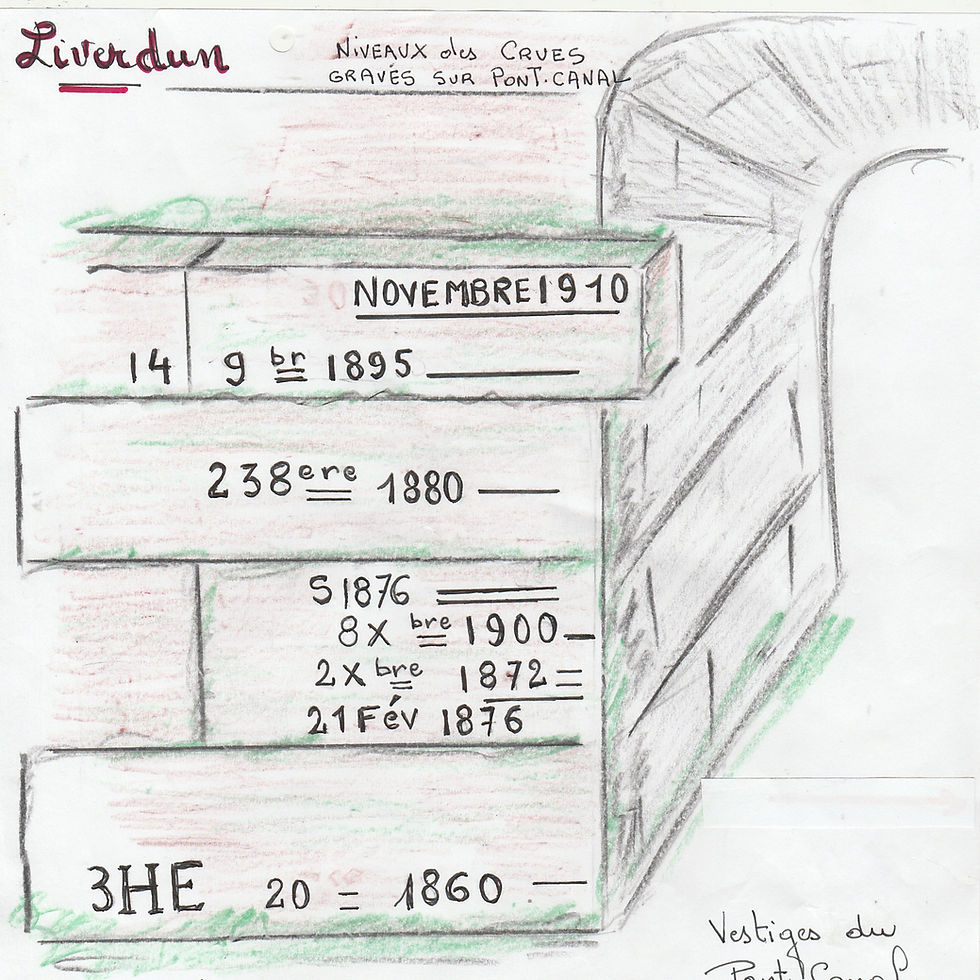 Liverdun
NIVEAUX des CRUES
GRAVÉS SUR PONT-CANAL
NOVEMBRE 1910
14 9 br 1895
238ere 1880
S 1876
8 X bre 1900
2 X bre 1872
21 Fév 1876
3HE 20 = 1860
Vestiges du
Pont-Canal